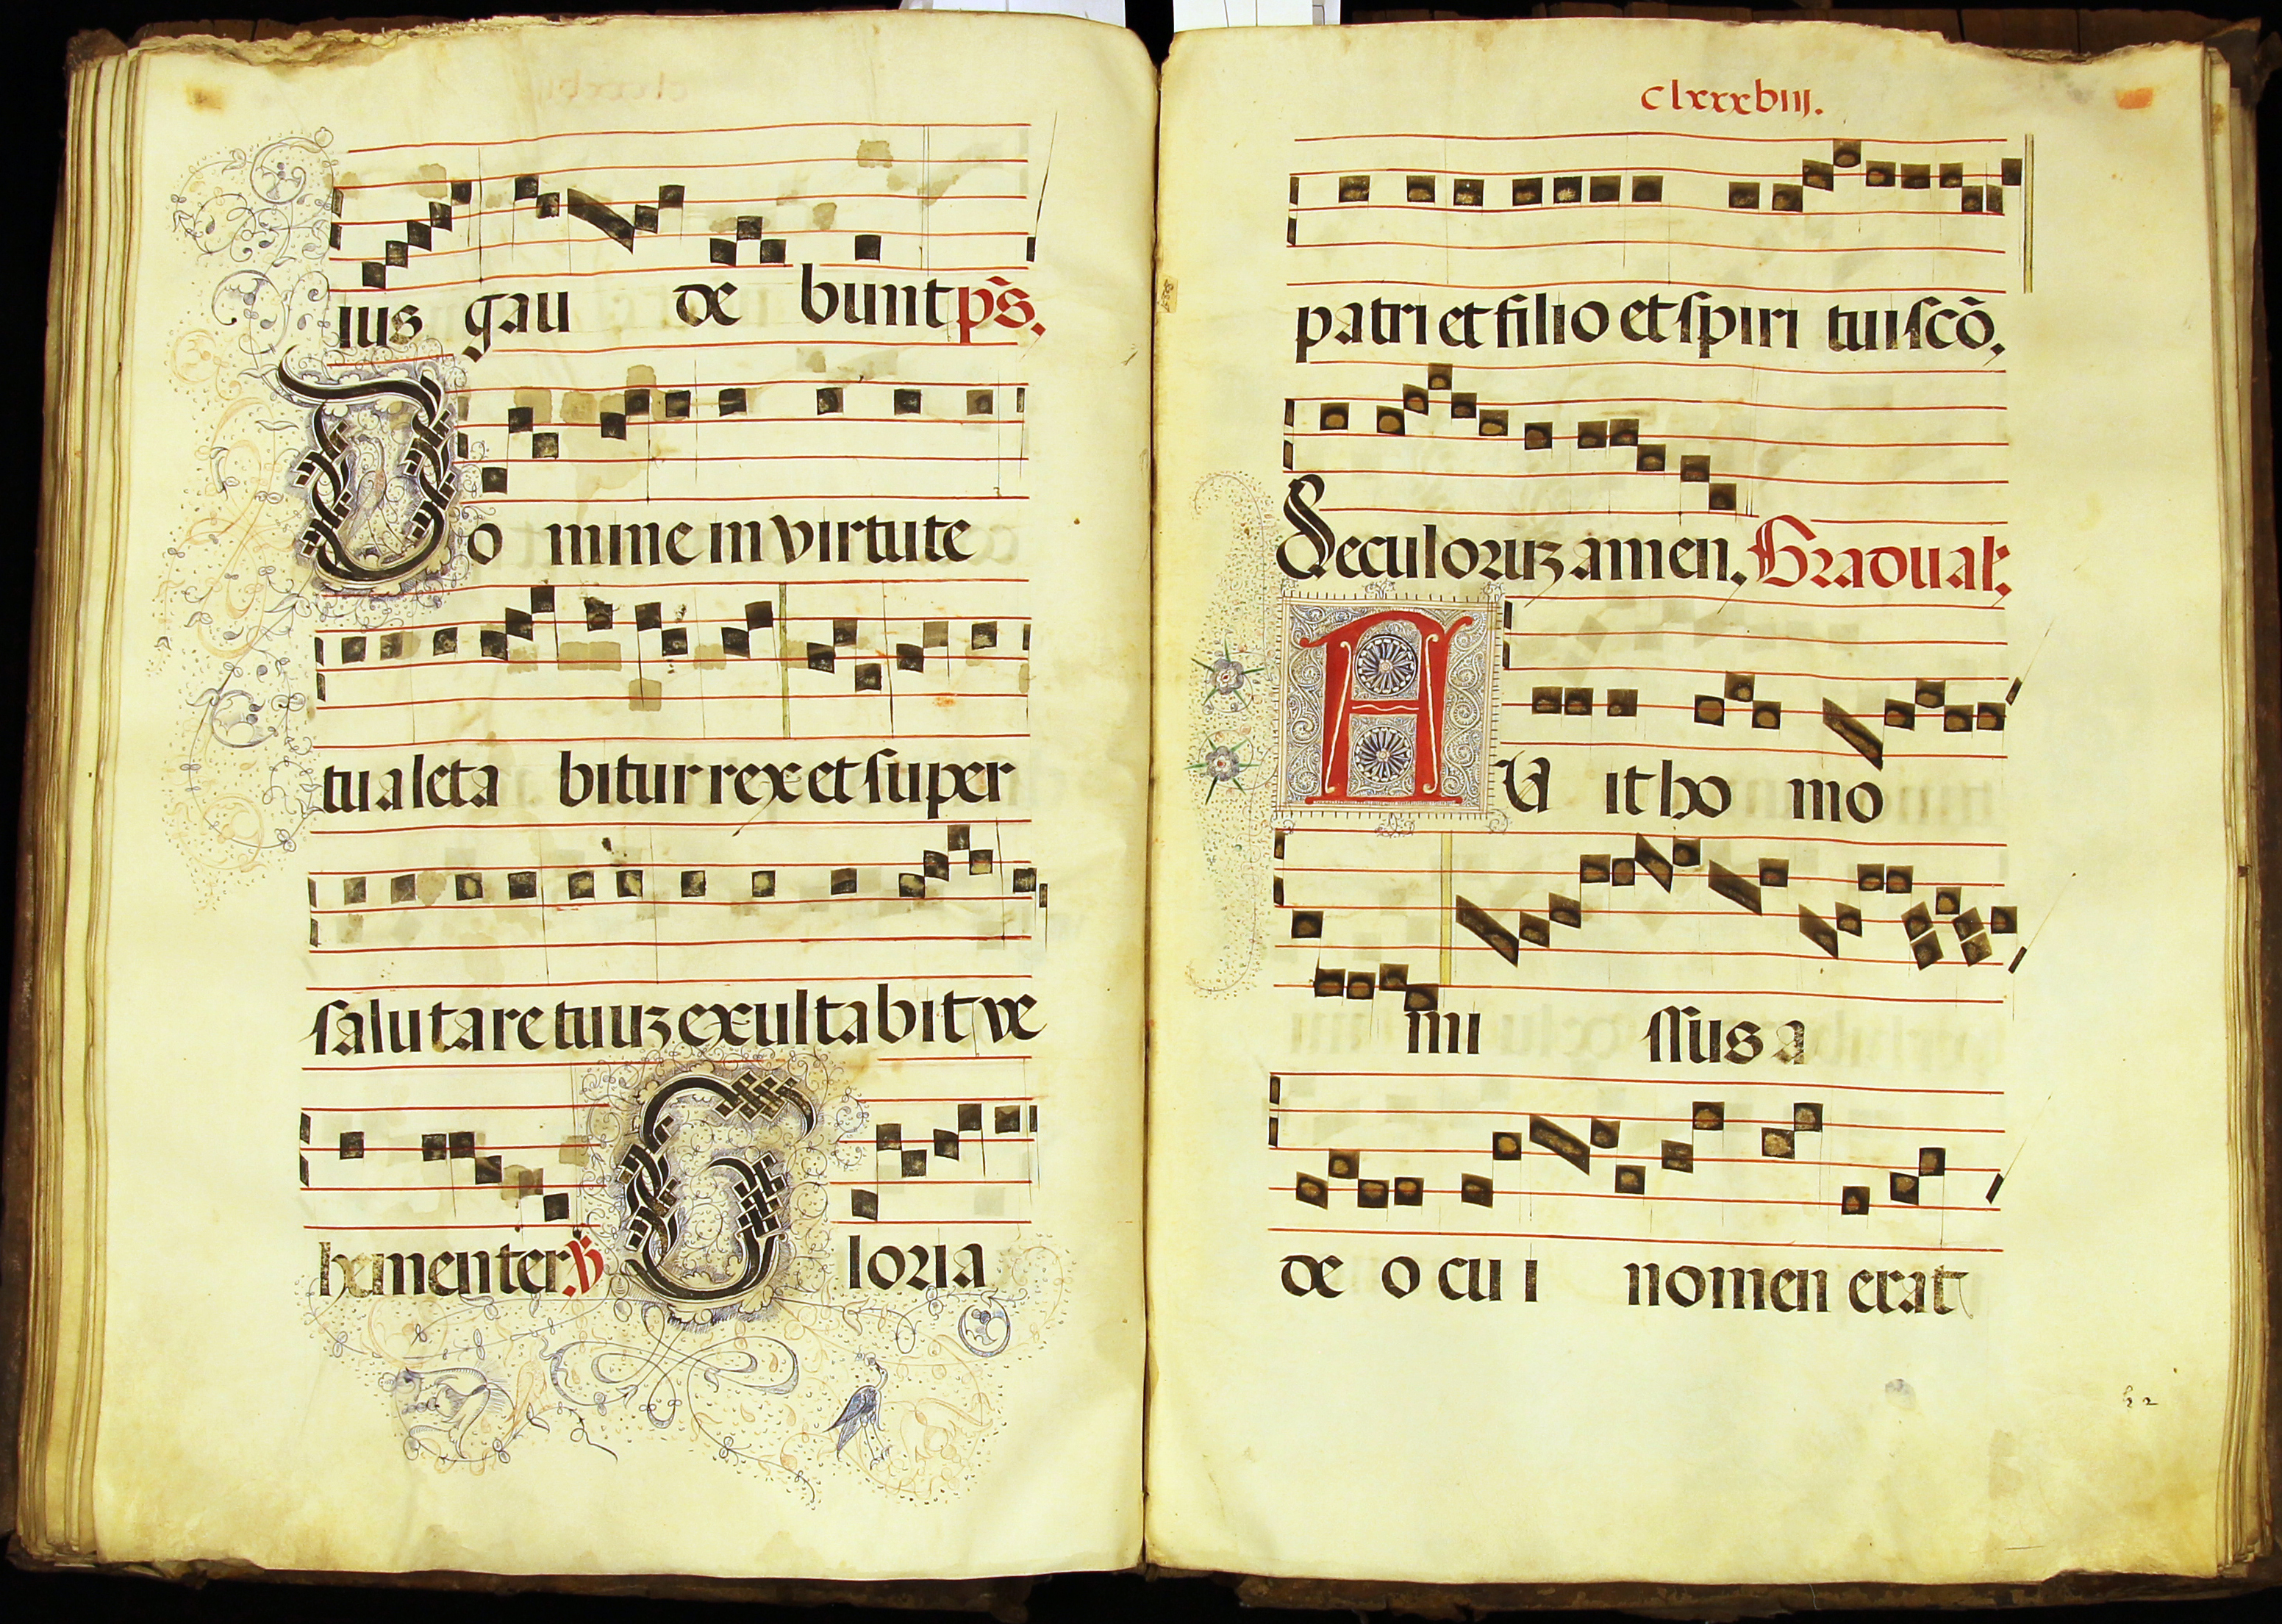 ius gau de bunt ps̃.
Do mine in virtute
tua leta bitur rex et super
salutare tuuz exultabit ve
hementer. ℣ Gloria
clxxxbiij.
patri et filio et spiri tui scõ.
Seculoruz amen. Gradual.
FU it ho mo
mi ssus a
de o cu i nomen erat